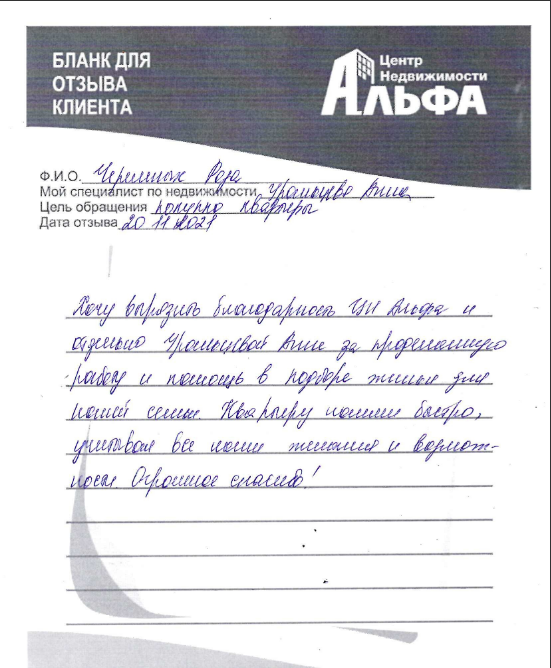 БЛАНК ДЛЯ
ОТЗЫВА
КЛИЕНТА
Центр
Недвижимости
АЛЬФА
Ф.И.О. Роза
Мой специалист по недвижимости Анна
Цель обращения покупка квартиры
Дата отзыва 20 11 2021
Хочу выразить благодарность ЦН Альфа и
отдельно Анне за проделанную
работу и помощь в подборе жилья для
нашей семьи. Квартиру нашли быстро,
учитывая все наши желания и возмож-
ности. Огромное спасибо!